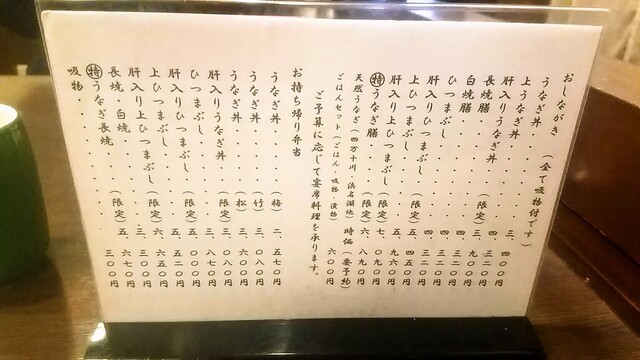 おしながき (全て吸物付です)
うなぎ丼・・・・三、四〇〇円
上うなぎ丼・・・・四、
肝入りうなぎ丼・・(限定)三、九〇〇円
長焼膳・・・・四、三二〇円
白焼膳・・・・四、三二〇円
ひつまぶし・・・・四、三二〇円
肝入りひつまぶし・(限定)五、四五〇円
上ひつまぶし・・・五、九六〇円
肝入り上ひつまぶし(限定)七、〇九〇円
㊕うなぎ膳・・(限定)六、八九〇円
天然うなぎ(四万十川 浜名湖他)時価(要予約)
ごはんセット(ごはん・吸物・漬物)六〇〇円
ご予算に応じて宴席料理を承ります。
お持ち帰り弁当
うなぎ丼・・・・(梅)二、五七〇円
うなぎ丼・・・・(竹)三、〇八〇円
うなぎ丼・・・・(松)三、六〇〇円
肝入りうなぎ丼・・(限定)三、〇八〇円
ひつまぶし・・・・三、八七〇円
肝入りひつまぶし・(限定)五、〇〇〇円
上ひつまぶし・・・五、五二〇円
肝入り上ひつまぶし(限定)六、六五〇円
長焼・白焼・・・三、三〇〇円
㊕うなぎ長焼・・(限定)五、
吸物・・・・三〇〇円